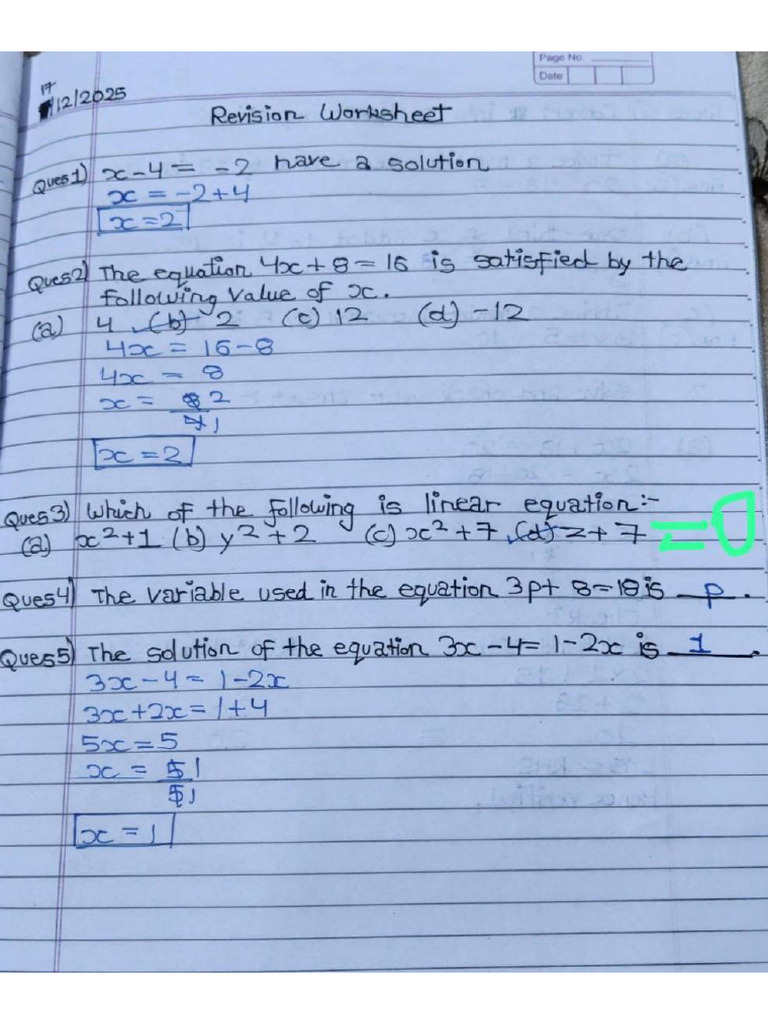 Page No.
Date
17/12/2025
Revision Worksheet
Ques1) x-4 = -2 have a solution
x = -2+4
x=2
Ques2) The equation 4x+8=16 is satisfied by the
following value of x.
(a) 4 (b) 2 (c) 12 (d) -12
4x = 16-8
4x = 8
x = 8 2
4 1
x=2
Ques3) Which of the following is linear equation:-
(a) x²+1 (b) y²+2 (c) x²+7 (d) z+7 =0
Ques4) The variable used in the equation 3p+8=18 is p.
Ques5) The solution of the equation 3x-4=1-2x is 1.
3x-4=1-2x
3x+2x=1+4
5x=5
x = 5 1
5 1
x=1